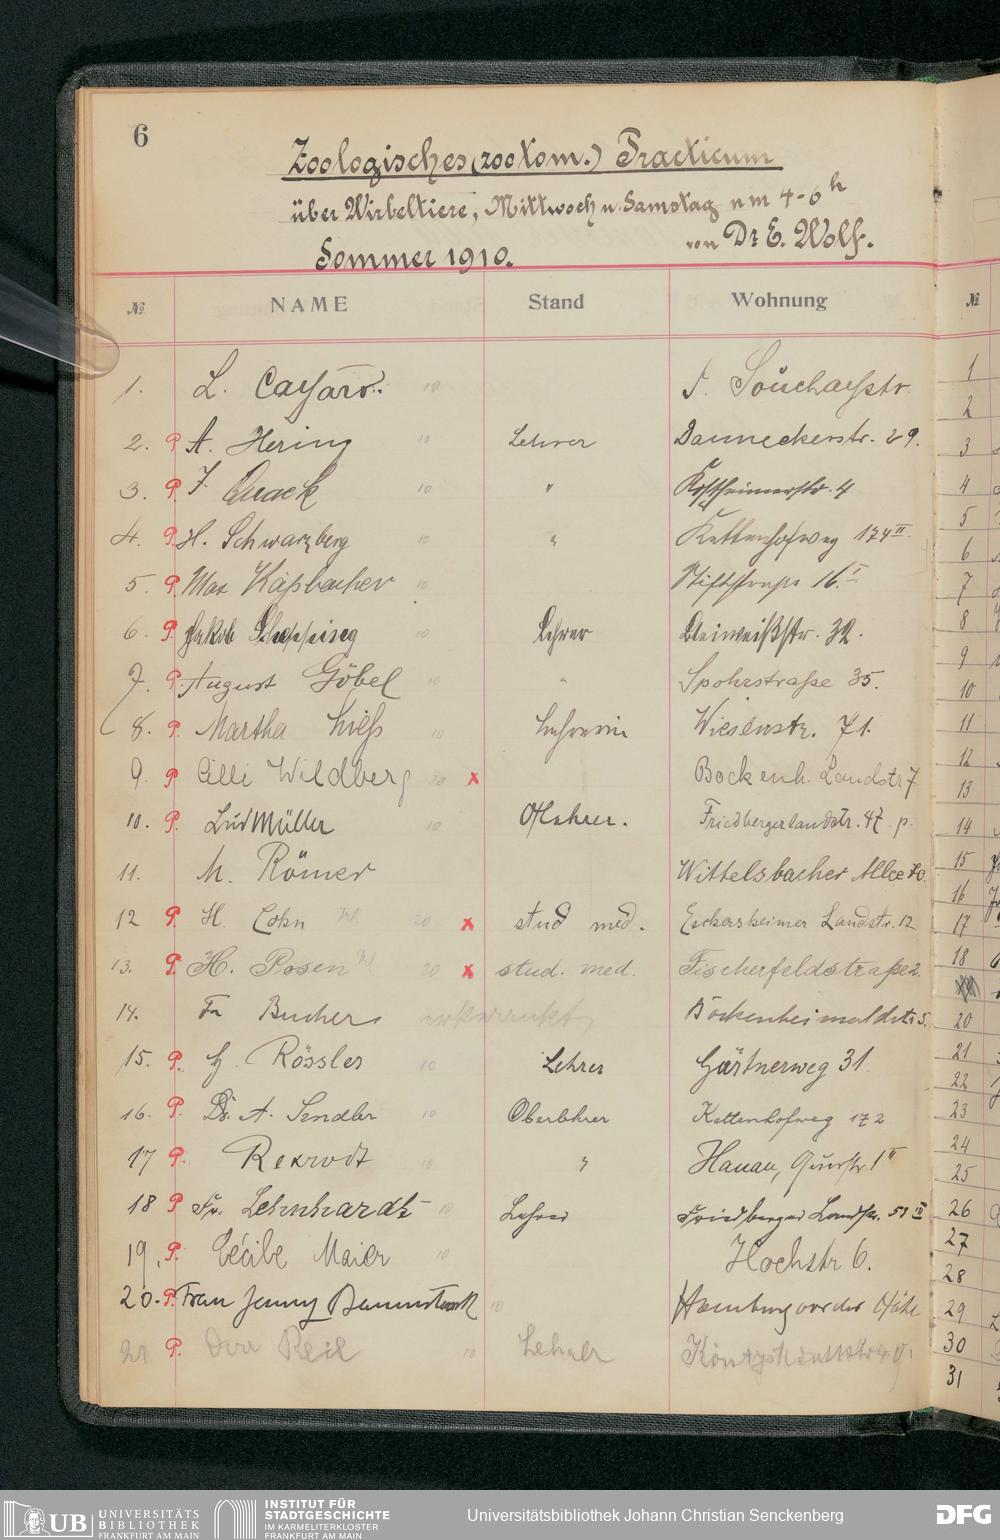 6
Zoologisches (zootom.) Practicum
über Wirbeltiere, Mittwoch u. Samstag nm 4-6 h
von Dr E. Wolf.
Sommer 1910.
№ NAME Stand Wohnung №
1. L. 10
2. P. A. Hering 10 Lehrer Danneckerstr. 29.
3. P. J. Quack 10 " 4
4. P. H. Schwarzberg 10 " Kettenhofweg 174 II.
5. P. Max Käpbacher 10 Stiftstrasse 16. I
6. P. Jakob 10 Lehrer Bleiweißstr. 32.
7. P. August Göbel 10 " Spohrstraße 35.
8. P. Martha 10 Lehrerin Wiesenstr. 71.
9. P. Cilli Wildberg 20 x Bockenh. Landstr 7
10. P. Lud Müller 10 Friedbergerlandstr. 47 p.
11. M. Römer Wittelsbacher Allee
12 P. H. Cohn 20 x stud med. Eschersheimer Landstr. 12
13. P. H. Posen 20 x stud. med. Fischerfeldstraße 2.
14. Fr Bucher erkrankt Bockenheimerldstr 5.
15. P. Rössler 10 Lehrer Gärtnerweg 31.
16. P. Dr. A. Sendler 10 Oberlehrer Kettenhofweg 172
17 P. Rexrodt 10 " Hanau, 1 II
18 P Fr. Lehnhardt 10 Lehrer Friedberger Landstr. 51 III
19. P. Cécile Maier 10 Hochstr 6.
20. P. Frau Jenny 10 Homburg vor der Höhe
21 P. Reil 10 Lehrer
1
2
3
4
5
6
7
8
9
10
11
12
13
14
15
16
17
18
20
21
22
23
24
25
26
27
28
29
30
31
UB UNIVERSITÄTS
BIBLIOTHEK
FRANKFURT AM MAIN
INSTITUT FÜR
STADTGESCHICHTE
IM KARMELITERKLOSTER
FRANKFURT AM MAIN
Universitätsbibliothek Johann Christian Senckenberg
DFG